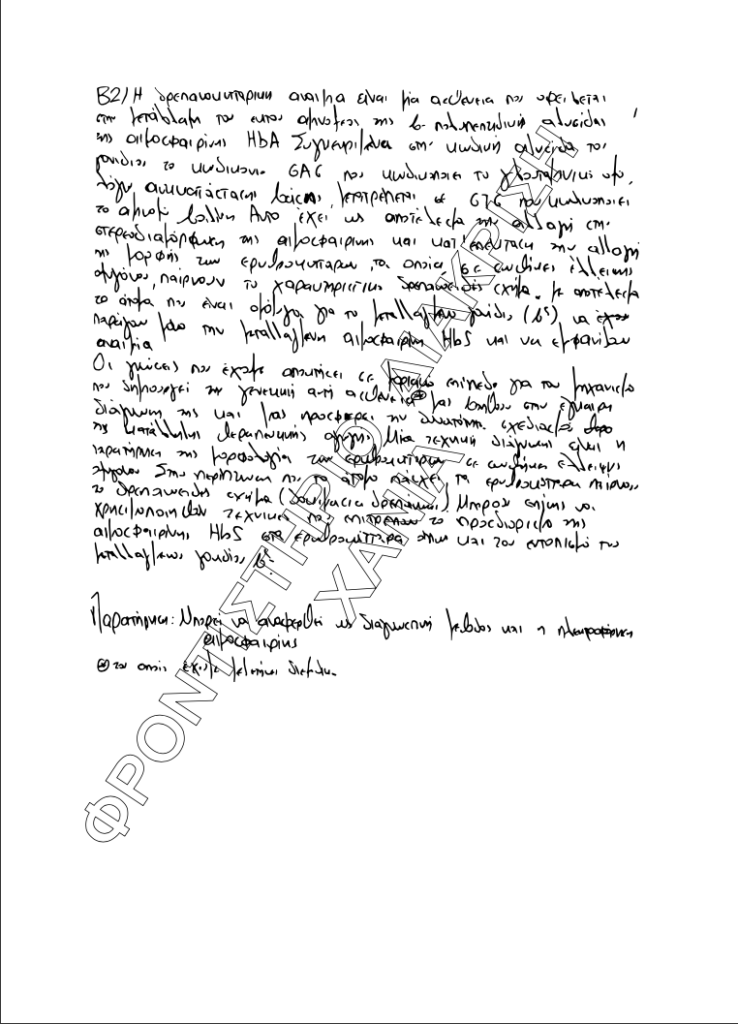 Β2) Η δρεπανοκυτταρική αναιμία είναι μία ασθένεια που οφείλεται
στη μετάλλαξη του έκτου αμινοξέος της β-πολυπεπτιδικής αλυσίδας
της αιμοσφαιρίνης HbA Συγκεκριμένα στη κωδική αλυσίδα του
γονιδίου το κωδικόνιο GAG που κωδικοποιεί το γλουταμινικό οξύ,
λόγω αντικατάστασης βάσης, μετατρέπεται σε GTG που κωδικοποιεί
το αμινοξύ βαλίνη Αυτό έχει ως αποτέλεσμα την αλλαγή στη
στερεοδιαμόρφωση της αιμοσφαιρίνης και κατ' επέκταση την αλλαγή
της μορφής των ερυθροκυττάρων, τα οποία, σε συνθήκες έλλειψης
οξυγόνου, παίρνουν το χαρακτηριστικό δρεπανοειδές σχήμα. με αποτέλεσμα
το άτομα που είναι ομόζυγα για το μεταλλαγμένο γονίδιο (βˢ) να
παράγουν μόνο την μεταλλαγμένη αιμοσφαιρίνη HbS και να εμφανίζουν
αναιμία
Οι γνώσεις που έχουμε αποκτήσει σε μοριακό επίπεδο για τον μηχανισμό
που δημιουργεί την γενετική αυτή ασθένεια⊛ μας βοηθούν στην έγκαιρη
διάγνωση της και μας προσφέρει την δυνατότητα σχεδιασμού
της κατάλληλης θεραπευτικής αγωγής Μία τεχνική διάγνωσης είναι η
παρατήρηση της μορφολογία των ερυθροκυττάρων σε συνθήκες έλλειψης
οξυγόνου Στην περίπτωση που το άτομο πάσχει, τα ερυθροκύτταρα παίρνουν
το δρεπανοειδές σχήμα (δοκιμασία δρεπάνωσης) Μπορούν επίσης να
χρησιμοποιηθούν τεχνικές που επιτρέπουν το προσδιορισμό της
αιμοσφαιρίνης HbS στα ερυθροκύτταρα όπως και τον εντοπισμό του
μεταλλαγμένου γονιδίου βˢ.
Παρατήρηση: Μπορεί να αναφερθεί ως διαγνωστική μέθοδος και η ηλεκτροφόρηση
αιμοσφαιρίνης
⊛ τον οποίο έχουμε
ΦΡΟΝΤΙΣΤΗΡΙΟ ΔΙΑΚΡΙΣΗ
ΧΑΝΙΑ